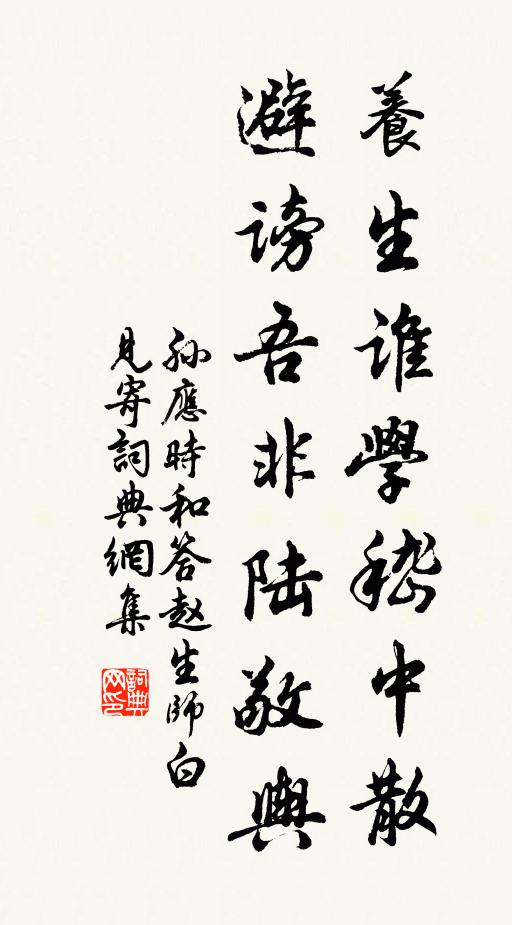 養生誰學嵇中散
避謗吾非陆敬輿
孙應時和答赵生師白
見寄詞典網集
詞典网印